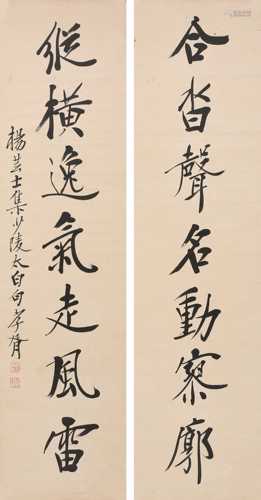 合沓聲名動寥廓
縱橫逸氣走風雷
楊芸士集少陵太白句孝胥